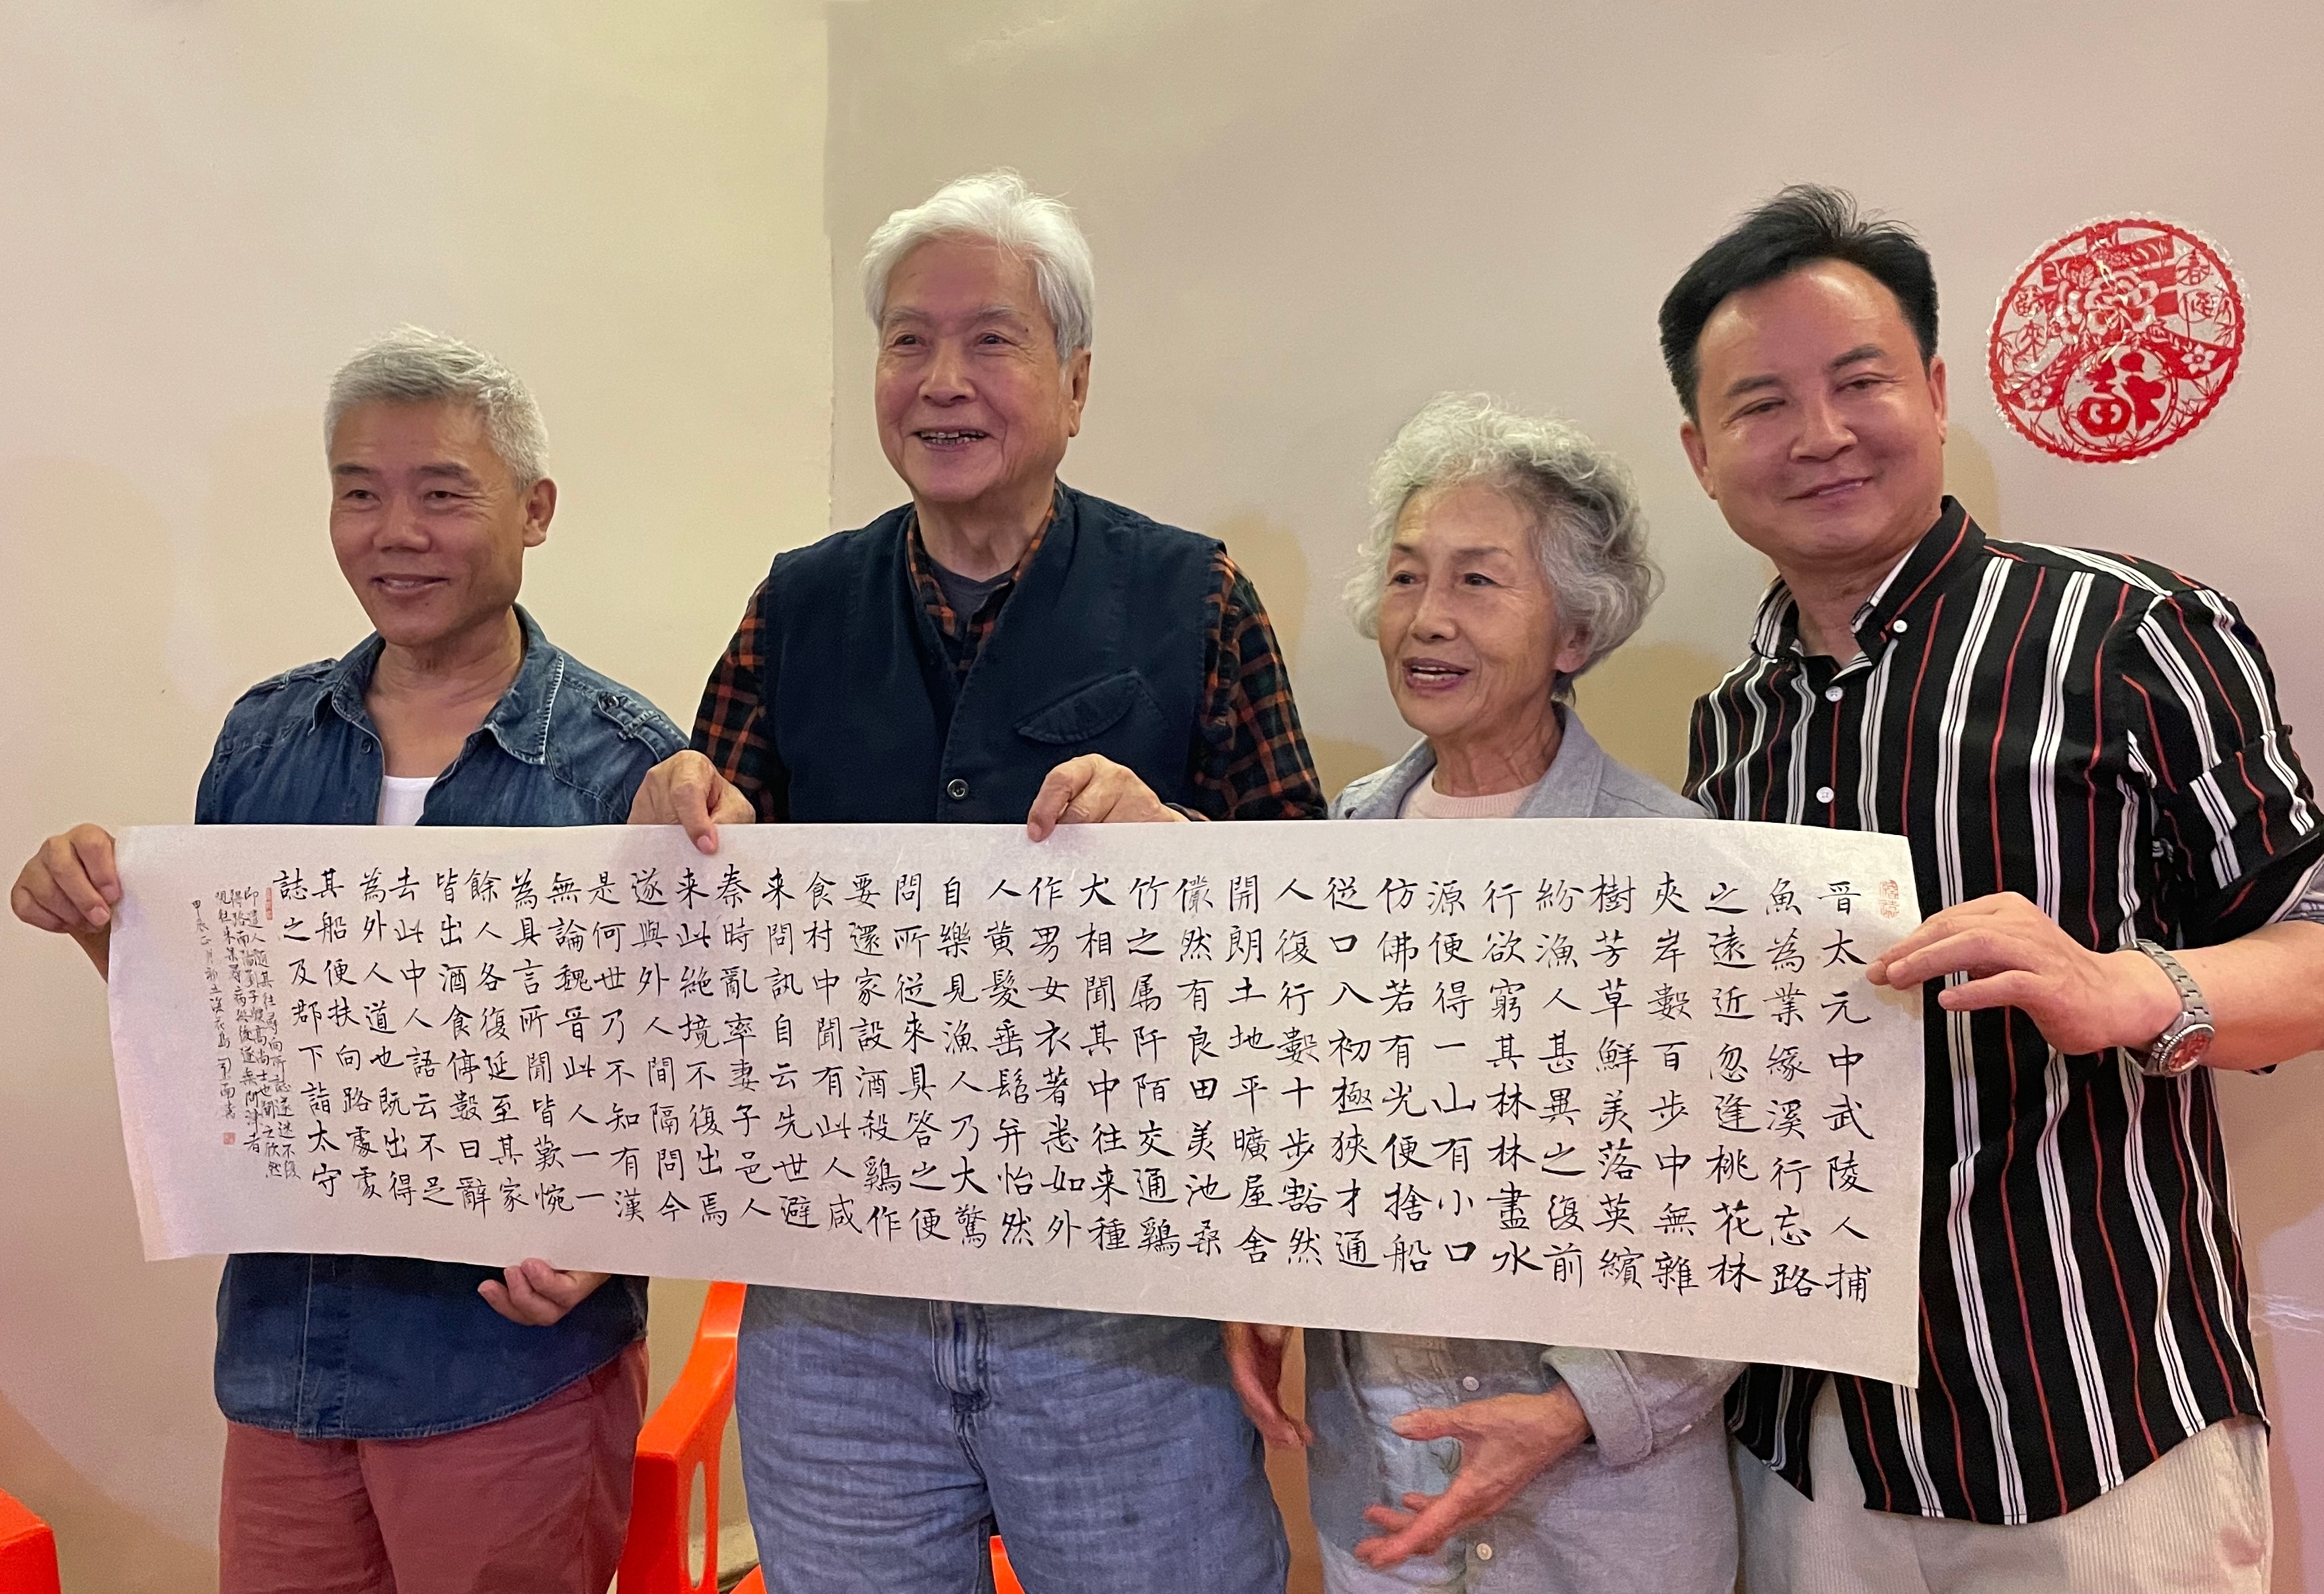 晋太元中武陵人捕
魚為業緣溪行忘路
之遠近忽逢桃花林
夾岸數百步中無雜
樹芳草鮮美落英繽
紛漁人甚異之復前
行欲窮其林林盡水
源便得一山有小口
仿佛若有光便捨船
従口入初極狹才通
人復行數十步豁然
開朗土地平曠屋舍
儼然有良田美池桑
竹之属阡陌交通鷄
犬相聞其中往来種
作男女衣著悉如外
人黄髮垂髫并怡然
自樂見漁人乃大驚
問所従来具答之便
要還家設酒殺鷄作
食村中聞有此人咸
来問訊自云先世避
秦時亂率妻子邑人
来此絶境不復出焉
遂與外人間隔問今
是何世乃不知有漢
無論魏晋此人一一
為具言所聞皆歎惋
餘人各復延至其家
皆出酒食停數日辭
去此中人語云不足
為外人道也既出得
其船便扶向路處處
誌之及郡下詣太守
即遣人隨其往尋向所誌遂迷不復
得路南陽劉子驥高尚士也聞之欣然
規往未果尋病終後遂無問津者
甲辰正月初
春
福